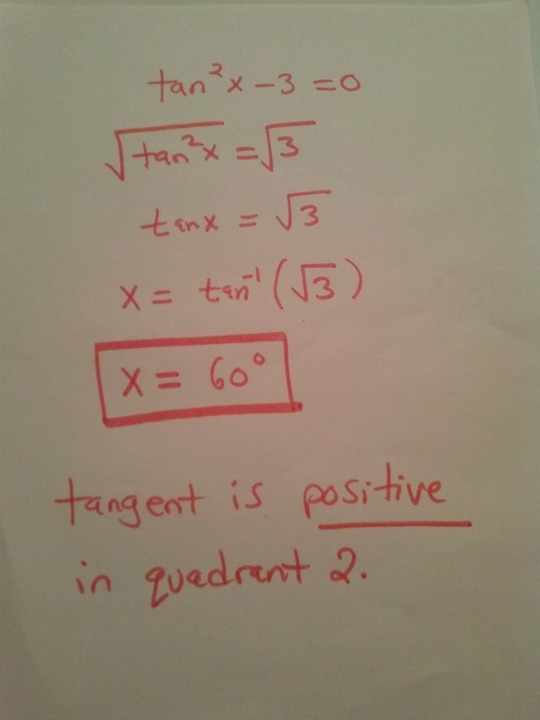 tan²x - 3 = 0
√tan²x = √3
tanx = √3
x = tan⁻¹(√3)
x = 60°
tangent is positive
in quadrant 2.